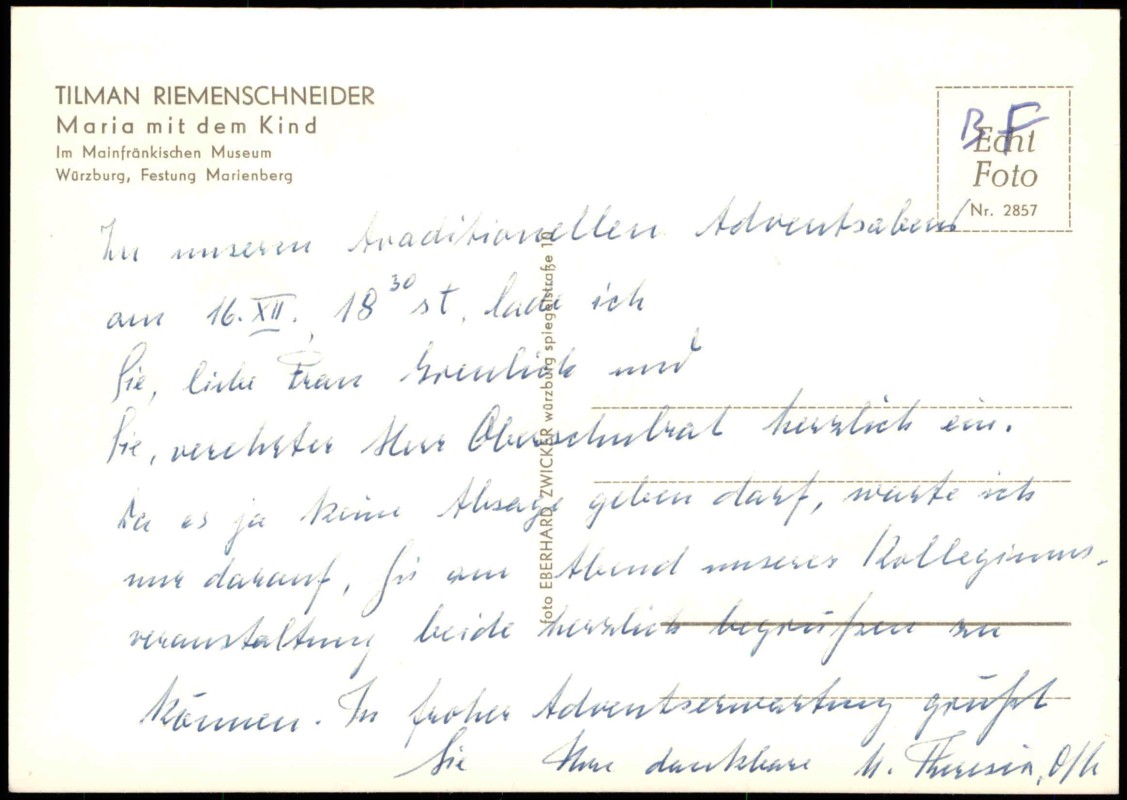 TILMAN RIEMENSCHNEIDER
Maria mit dem Kind
Im Mainfränkischen Museum
Würzburg, Festung Marienberg
B F
Echt
Foto
Nr. 2857
Zu unserm traditionellen Adventsabend
am 16. XII. 18 30 st. lade ich
Sie, liebe Frau und
Sie, verehrter Herr Oberschulrat herzlich ein.
Da es ja keine Absage geben darf, warte ich
nur darauf, Sie am Abend unserer Kollegiums-
veranstaltung beide herzlich begrüßen zu
können. In froher Adventserwartung grüßt
Sie Ihre dankbare M. Theresia,
foto EBERHARD ZWICKER würzburg spiegelstraße 10